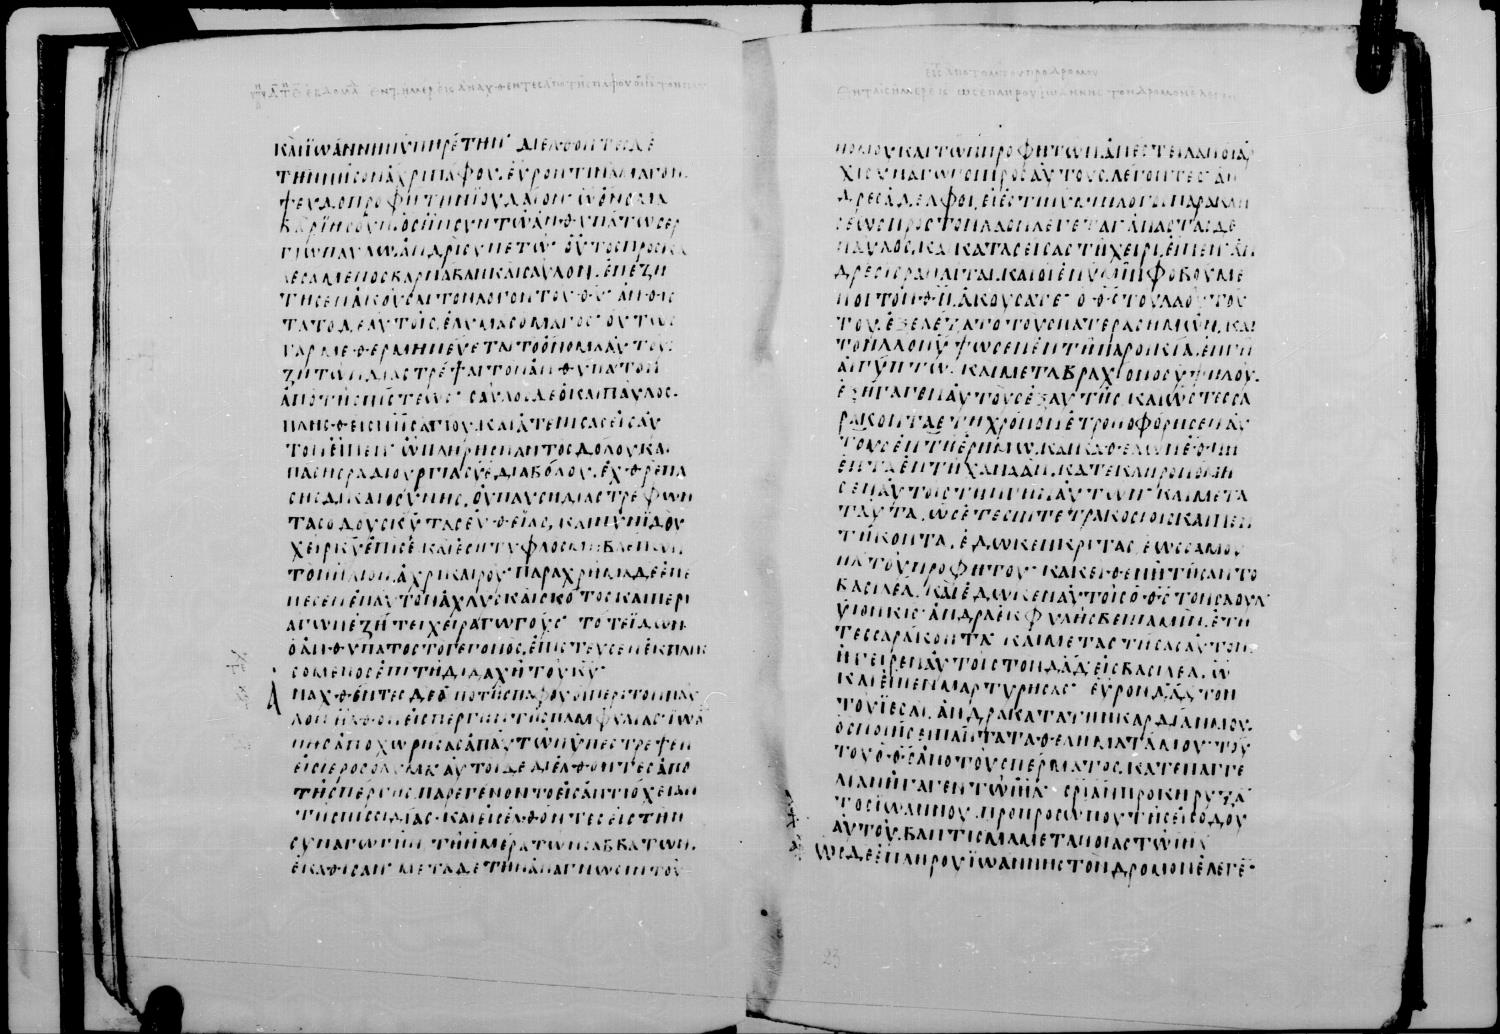 καὶ ἰωάννην ὑπηρέτην· διελθοντες δε
τὴν νῆσον ἄχρι παφου. εὗρον τινα μαγον.
ψευδοπροφήτην ἰουδαῖον· ὧ ὄνομα
βαρϊησοῦν. ὃς ἦν συν τῶ ἀνθυπάτω σερ
γίω παυλω. ἀνδρὶ συνετῶ· οὗτος προσκα
λεσαμενος βαρναβαν καὶ σαῦλον. ἐπεζη
τησεν ἀκοῦσαι τον λογον του θυ· ἀνθις
τατο δε αυτοῖς ἐλυμας ο μαγος· ουτως
γαρ μεθερμηνευεται το ὄνομα αὐτου.
ζητων διαστρέψαι τον ἀνθυπατον
ἀπο τῆς πίστεως· σαυλος δε ὁ καὶ παῦλος.
πλησθεὶς πνς αγιου. και ἀτενισας εἰς αὐ
τον εἶπεν· ὦ πλήρης παντος δολου και
πασης ραδιουργιας υἱε διαβόλου. ἐχθρε πα
σης δικαιοσύνης. οὐ παυση διαστρέφων
τας οδους κυ τας εὐθείας. και νυν ἰδοὺ
χεὶρ κυ ἐπι σὲ. και ἔση τυφλος μη βλεπων
τον ἥλιον. ἄχρι καιροῦ· παραχρῆμα δε ἐπε
πεσεν ἐπ αυτον ἀχλυς και σκότος και περι
αγων ἐζήτει χειραγωγούς· τότε ἰδων
ὁ ἀνθυπατος το γεγονος. ἐπιστευσεν ἐκπλησ
σομενος ἐπι τῆ διδαχῆ τοῦ κυ·
Ἀναχθέντες δε ἀπο τῆς παφου οἱ περι τον παυ
λον ἦλθον εἰς περγην τῆς παμφυλιας· ἰωαν
νης ἀποχωρησας ἀπ αὐτων ὑπεστρεψεν
εἰς ἱεροσολυμα· αὐτοι δε διελθοντες ἀπο
τῆς πέργης. παρεγένοντο εἰς ἀντιόχειαν
τῆς πισιδίας. και εἰσελθόντες εἰς τὴν
συναγωγὴν τῆ ἡμέρα τῶν σαββατων.
ἐκαθισαν· μετα δε τὴν ἀναγνωσιν τοῦ
νομου και τῶν προφητων ἀπέστειλαν οἱ ἀρ
χισυναγωγοι προς αὐτους. λεγοντες ἀν
δρες ἀδελφοι. εἰ ἐστιν ἐν ὑμιν λογος παρακλη
σεως προς τον λαον λεγετε· ἀναστας δε
παυλος. και κατασεισας τῆ χειρι. εἶπεν· ἄν
δρες ισραηλιται. και οἱ ἐν ὑμῖν φοβουμε
νοι τον θν. ἀκουσατε· ὁ θς τοῦ λαοῦ του
του. ἐξελέξατο τους πατερας ἡμῶν. και
τον λαον ὕψωσεν ἐν τῆ παροικία. ἐν γῆ
αἰγύπτω. και μετα βραχιονος ὑψηλοῦ.
ἐξήγαγεν αὐτοὺς ἐξ αυτῆς. και ὡς τεσσα
ρακονταετη χρόνον ἐτροποφόρησεν αὐ
τους ἐν τῆ ἐρήμω. και καθελων ἔθνη
ἑπτα ἐν γῆ χαναάν. κατεκληρονομη
σεν αὐτοις την γῆν αὐτων· και μετα
ταῦτα. ὡς ἔτεσιν τετρακοσιοις και πεν
τήκοντα. ἔδωκεν κριτας. ἕως σαμου
ηλ τοῦ προφητου· κακειθεν ἠτήσαντο
βασιλέα. και ἔδωκεν αὐτοῖς ὁ θς τον σαουλ
υἱον κις· ἄνδρα ἐκ φυλῆς βενιαμιν. ἔτη
τεσσαράκοντα· και μεταστησας αὐτον.
ἤγειρεν αὐτοις τον δαδ εἰς βασιλεα. ὧ
και εἶπεν μαρτυρησας· εὗρον δαδ τον
τοῦ ἰεσσαι. ἄνδρα κατα την καρδίαν μου.
ὃς ποιήσει παντα τα θεληματα μου· του
του ὁ θς ἀπο τοῦ σπέρματος. κατ επαγγε
λιαν ἤγαγεν τῶ ιηλ· σριαν προκηρυξα
τος ἰωαννου. προ προσώπου τῆς εἰσοδου
αὐτοῦ. βαπτισμα μετανοιας τῶ ιηλ
Ὡς δε ἐπληρου ἰωάννης τον δρομον ἔλεγε·
23